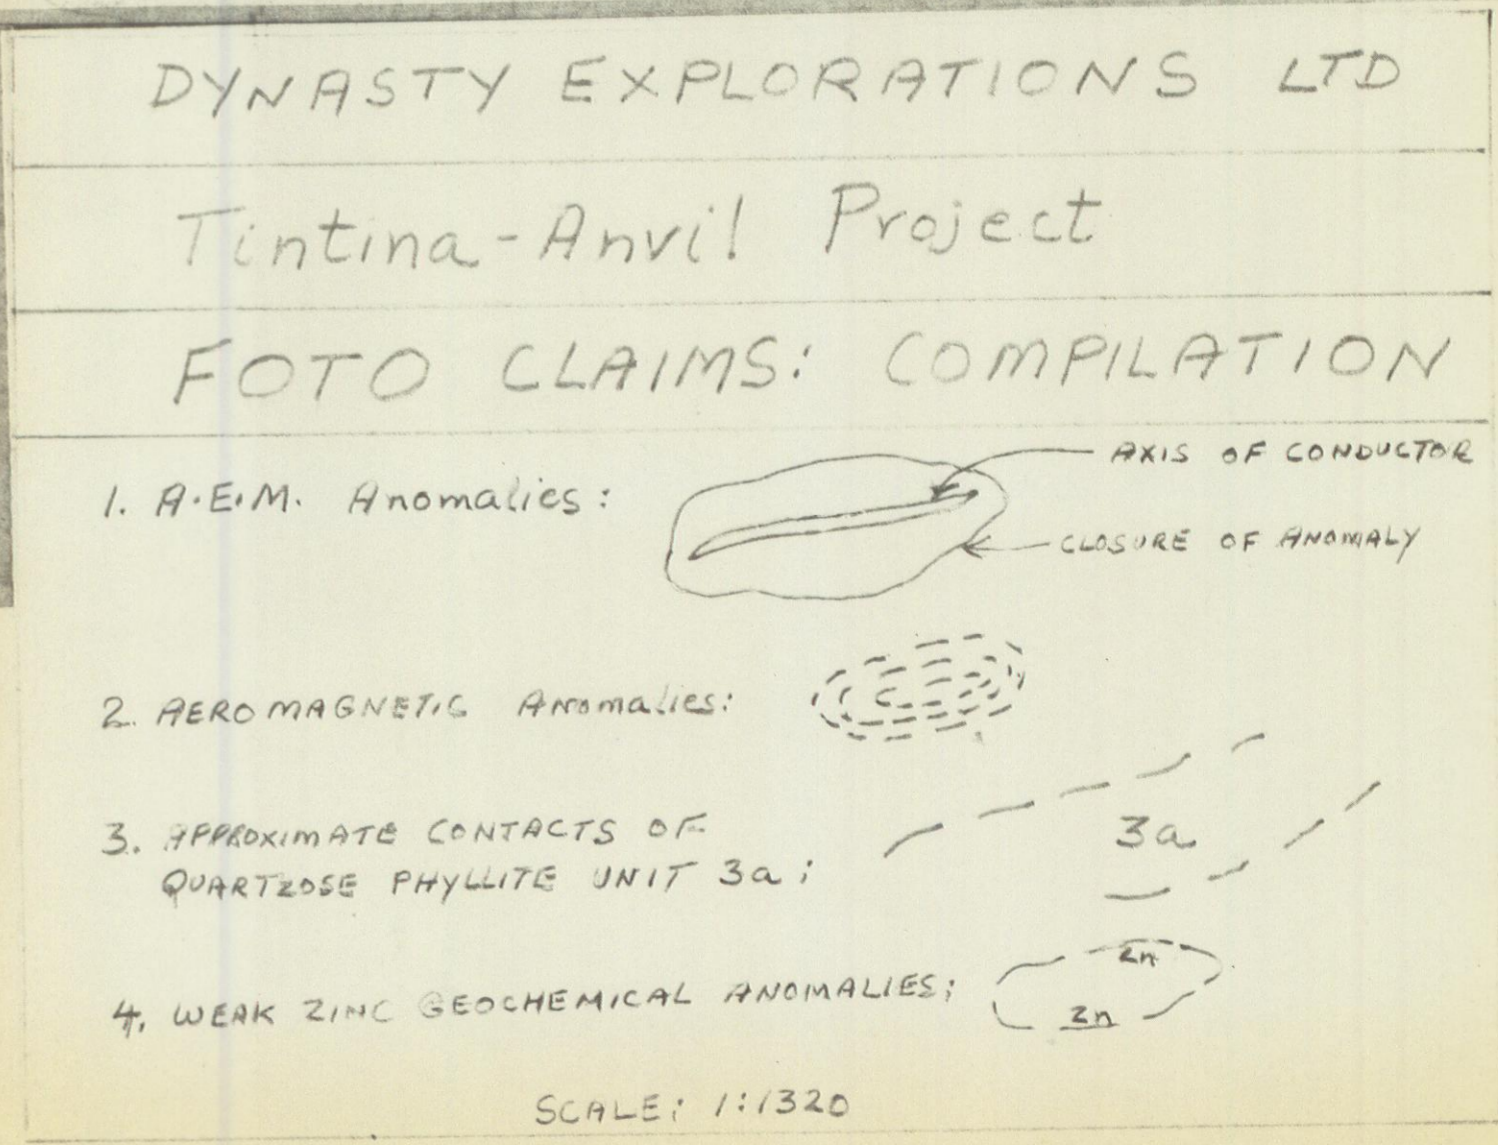 DYNASTY EXPLORATIONS LTD
Tintina-Anvil Project
FOTO CLAIMS: COMPILATION
1. A.E.M. Anomalies:
AXIS OF CONDUCTOR
CLOSURE OF ANOMALY
2. AEROMAGNETIC Anomalies:
3. APPROXIMATE CONTACTS OF
QUARTZOSE PHYLLITE UNIT 3a:
3a
4. WEAK ZINC GEOCHEMICAL ANOMALIES:
Zn
Zn
SCALE: 1:1320